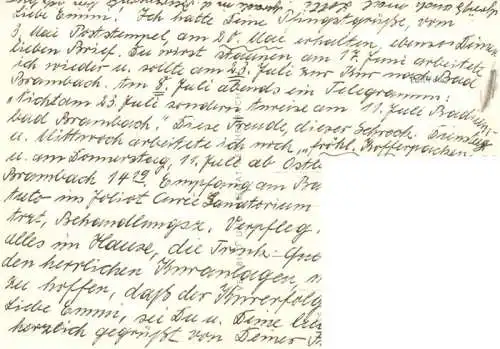 Liebe Emmi! Ich hatte Deine Pfingstgrüße, vom
3. Mai Poststempel, am 20. Mai erhalten, ebenso Deinen
lieben Brief. Du wirst staunen, am 17. Juni arbeitete
ich wieder u. sollte am 23. Juli zur Kur nach Bad
Brambach. Am 8. Juli abends ein Telegramm:
"Nicht am 23. Juli sondern Anreise am 11. Juli Radium-
bad Brambach." Diese Freude, dieser Schreck. Dienstag
u. Mittwoch arbeitete ich noch, "fröhl. Kofferpacken."
u. am Donnerstag, 11. Juli ab Ostb
Brambach 14 19. Empfang am Ba
Auto ins Joliot Curie Sanatorium
Arzt, Behandlungsz. Verpfleg.
alles im Hause, die Trink- Que
den herrlichen Kuranlagen
zu hoffen, daß der Kurerfolg
Liebe Emmi, sei Du u. Deine
herzlich gegrüßt von Deiner